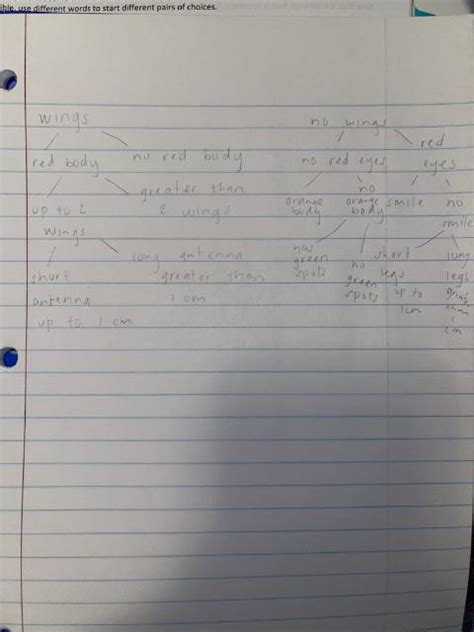 ible, use different words to start different pairs of choices.
wings no wings
red
red body no red body no red eyes eyes
greater than no
up to 2 2 wings orange body orange body smile no
wings smile
long antenna has green spots no green spots short legs long legs
short greater than up to
antenna 1 cm 1cm than
up to 1 cm 1
cm